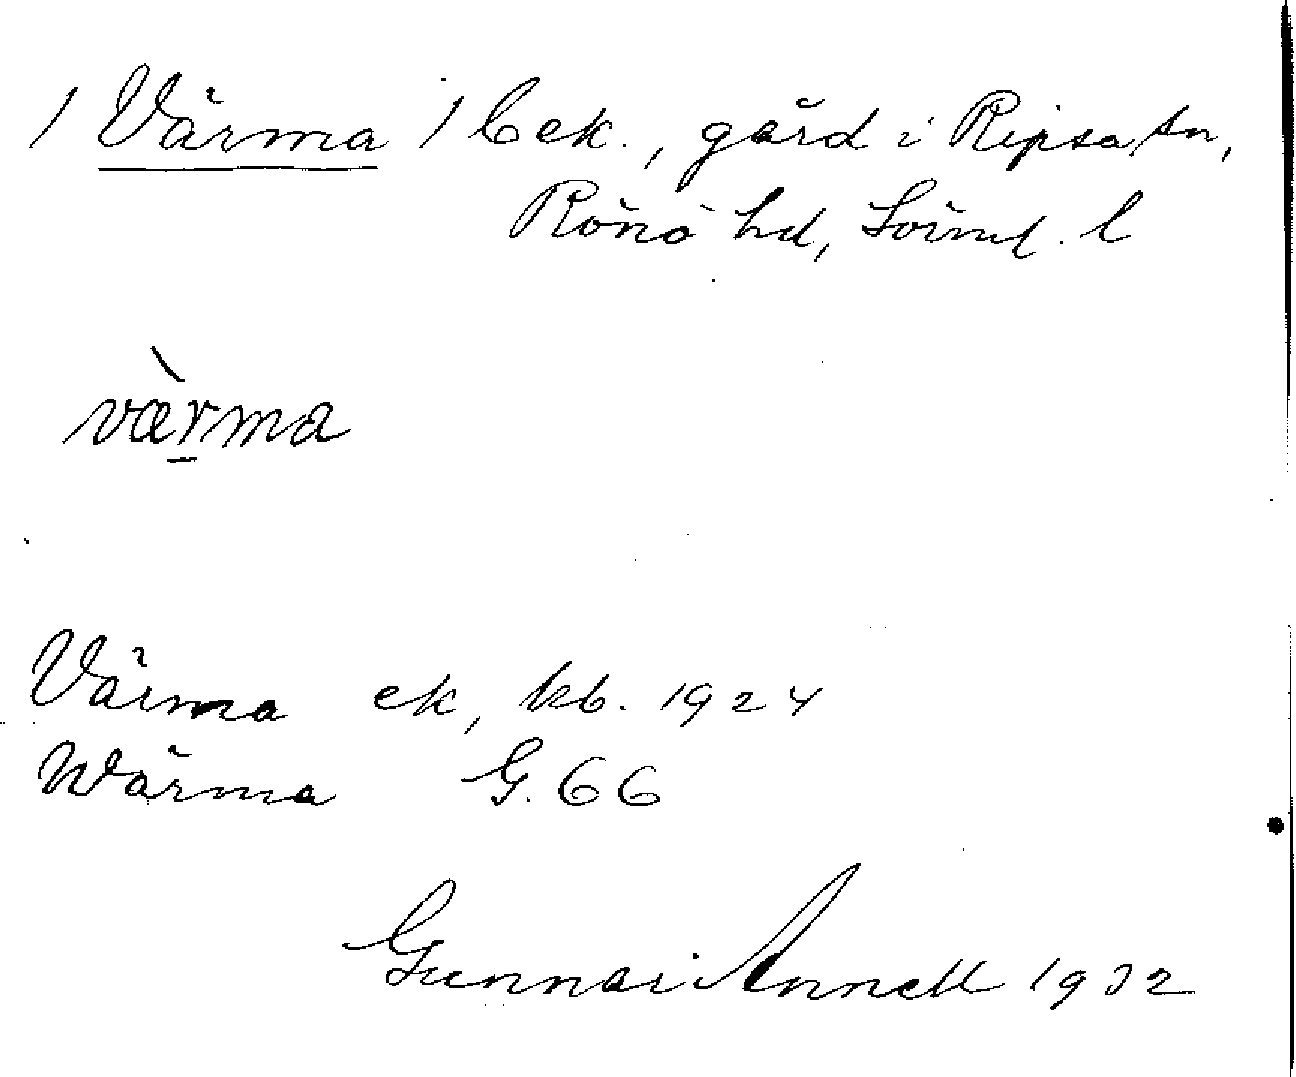 / Värma / Eek., gård i Ripsa sn,
Rönö hd, Södml. l
värma
Värma ek, kb. 1924
Wärma G. 66
Gunnar Annell 1932